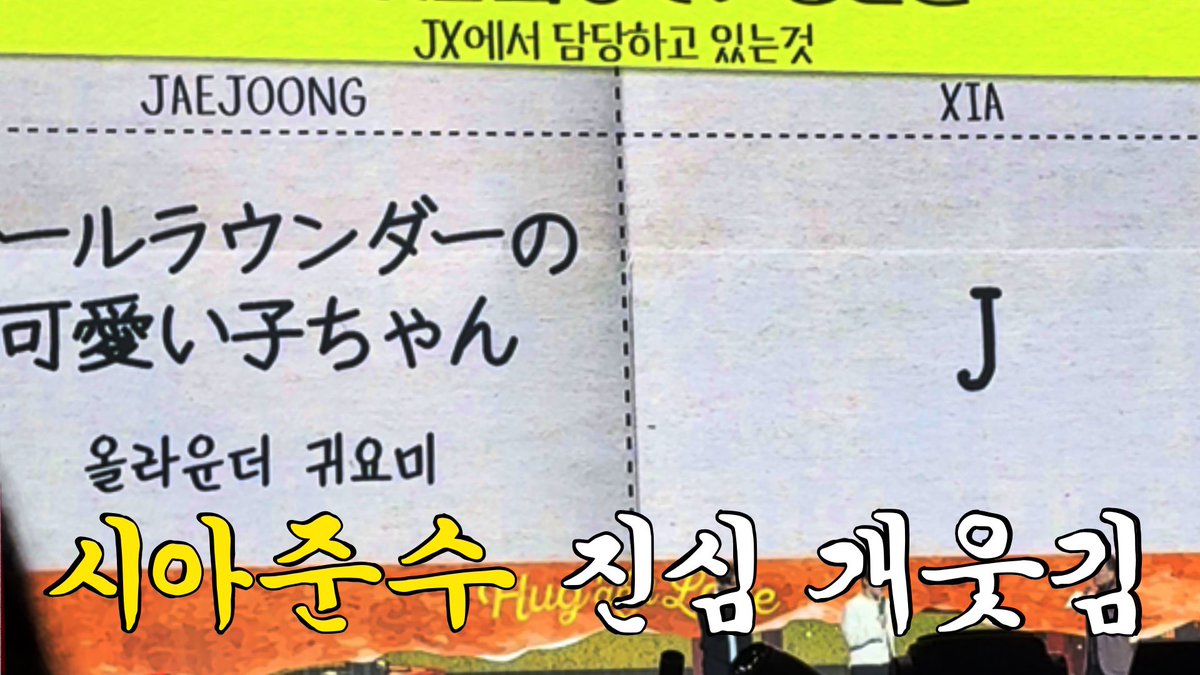 JX에서 담당하고 있는것
JAEJOONG
XIA
ールラウンダーの
可愛い子ちゃん
올라운더 귀요미
J
시아준수 진심 개웃김
Hug